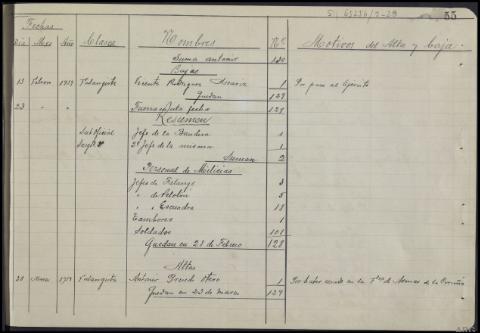 S. 65236/2-29
55
Fechas
Dia Mes Año Clases Nombres Nº Motivos del Alta y baja.
Suma anterior 130
Bajas
13 Febrero 1939 Falangista Vicente Rodriguez 1 Por pase al Ejército
Quedan 129
23 " " Fuerza en esta fecha 128
Resumen
Suboficial Jefe de la Bandera 1
Sargtº 2º Jefe de la misma 1
Suman 2
Personal de Milicias
Jefes de Falange 3
" de Pelotón 5
" " Escuadra 18
Tambores 1
Soldados 101
Quedan en 28 de Febrero 128
Altas
23 Marzo 1939 Falangista Antonio Otero 1 Por haber cesado en la de Armas de la Coruña
Quedan en 23 de marzo 129